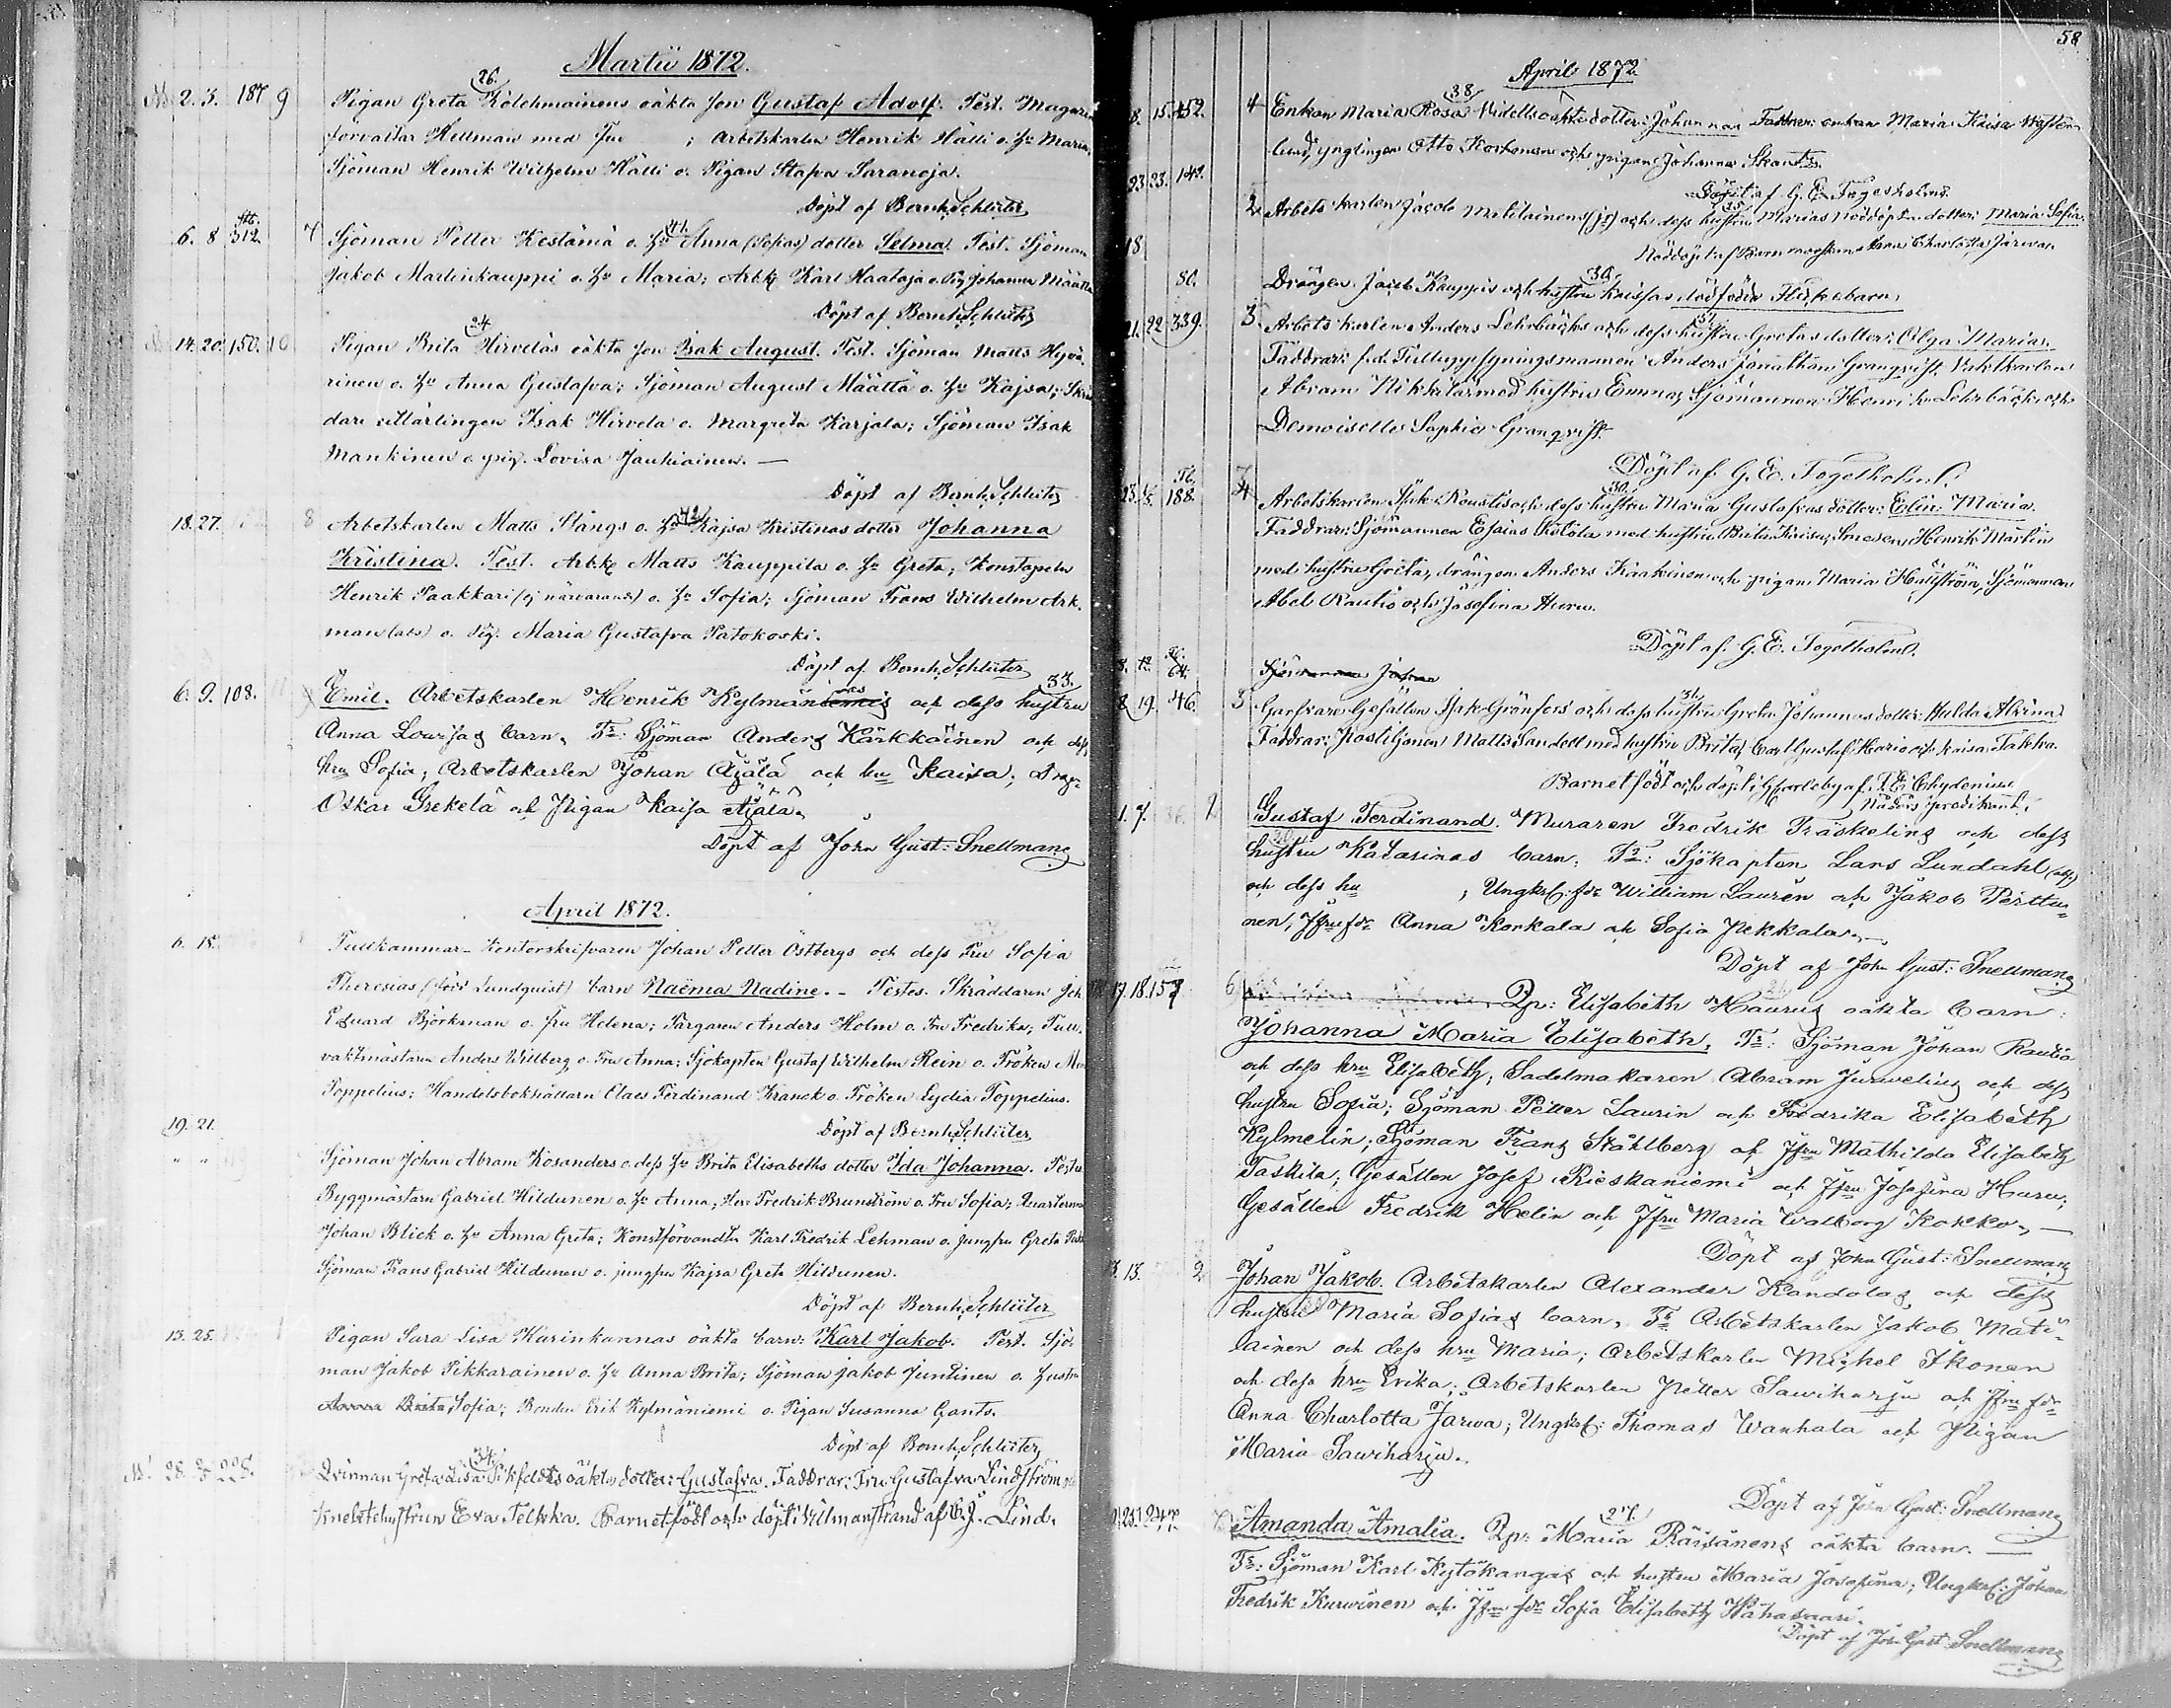 Martii 1872.
26.
No 2. 3. 187 9 Pigan Greta Kölchmainens oäkta son Gustaf Adolf. Test. Magasins
förvaltar Hellman med Fru ; arbetskarlen Henrik Hälli o. hu Maria,
Sjöman Henrik Wilhelm Hälli o. Pigan Stafva Saranoja.
Döpt af Bernh. Schlüter
6. 8 312. 7 Sjöman Petter Kestämä o. hu Anna (Sofias) dotter Selma. Test. Sjöman
41.
Jakob Martinkauppi o. hu Maria; Arbk Karl Haataja o. Pig. Johanna Määtta
Döpt af Bernh. Schlüter
24
No 14. 20. 150. 10 Pigan Brita Hirveläs oäkta son Isak August. Test. Sjöman Matts Hyvä
rinen o. hu Anna Gustafva; Sjöman August Määttä o. hu Kajsa; Skräd
dare lärlingen Isak Hirvelä o. Margreta Karjala; Sjöman Isak
Mankinen o. pig. Lovisa Jauhiainen. —
Döpt af Bernh. Schlüter
18. 27. 8 Arbetskarlen Matts Stångs o. hu Kajsa Kristinas dotter Johanna
42
Kristina. Test. Arbk Matts Kauppila o. hu Greta; Konstapeln
Henrik Paakkari (ej närvarande) o. hu Sofia; Sjöman Frans Wilhelm Ark-
man (abs) o. Pig. Maria Gustafva Patokoski.
Döpt af Bernh. Schlüter
33.
6. 9. 108. Emil. Arbetskarlen Henrik Kylmän och dess hustru
Anna Lovisas barn. Fr: Sjöman Anders Kärkkäinen och dess
hru Sofia; Arbetskarlen Johan Ajälä och hu Kaisa; Dräng
Oskar Grekelä och Pigan Kaisa Ajälä.
Döpt af John Gust: Snellman
April 1872.
6. 15. Tullkammar-kontorskrifvaren Johan Petter Östbergs och dess Fru Sofia
Theresias (född Lundquist) barn Naëma Nadine. - Testes. Skräddaren Joh
Eduard Björkman o. fru Helena; Färgaren Anders Holm o. Fru Fredrika; Tull-
vaktmästaren Anders Willberg o. Fru Anna; Sjökapten Gustaf Wilhelm Rein o. Fröken
Toppelius; Handelsbokhållarn Claes Ferdinand Franck o. Fröken Lydia Toppelius.
19. 21. Döpt af Bernh. Schlüter
" " Sjöman Johan Abram Kosanders o. dess hu Brita Elisabeths dotter Ida Johanna. Testes
Byggmästarn Gabriel Hildunen o. hu Anna; Herr Fredrik Brunström o. Fru Sofia;
Johan Blick o. hu Anna Greta; Konstförvandten Karl Fredrik Lehman o. jungfru Greta
Sjöman Frans Gabriel Hildunen o. jungfru Kajsa Greta Hildunen.
Döpt af Bernh. Schlüter
13. 25. Pigan Sara Lisa Karinkannas oäkta barn: Karl Jakob. Test. Sjö-
man Jakob Pikkarainen o. hu Anna Brita; Sjöman Jakob Juntinen o. hustru
Anna Brita Sofia; Bonden Erik Kylmäniemi o. Pigan Susanna Gants.
Döpt af Bernh. Schlüter
34.
28. 228. Qvinnan Greta Lisa Pikfeldts oäkta dotter: Gustafva. Faddrar: Fru Gustafva Lindström
Knektehustrun Eva Telkka. Barnet född och döpt i Vilmanstrand af C. J. Lind.
58
April 1872
38
8. 15. 152. 4 Enkan Maria Rosa Vidells oäkta dotter: Johanna Faddrar: enkan Maria Kaisa Westen-
lund, ynglingen Otto Korhonen och pigan Johanna Skants.
Döpt af G. E. Fogelholm.
23 23. 142. 2 Arbetskarlen Jacob Matilainens och dess hustru Marias nöddöpta dotter: Maria Sofia.
35
18 Nöddöpt af Barnmorskan Anna Charlotta Järwa
30.
80. Drängen Jacob Kauppis och hustru Kaisas dödfödda Flickebarn.
21. 22 339. 3. Arbetskarlen Anders Lehrbäcks och dess hustru Gretas dotter: Olga Maria.
Faddrar: f.d. Tulluppsyningsmannen Anders Jonathan Granqvist, Vaktkarlen
Abram Nikkilä med hustru Emma; Sjömannen Henrik Lehrbäck och
Demoiselle Sophie Granqvist.
Döpt af G. E. Fogelholm.
30.
23. 188. 4 Arbetskarlen Isak Rautis och dess hustru Maria Gustafvas dotter: Elin Maria.
Faddrar: Sjömannen Esaias Ketola med hustru Brita Kaisa; Smeden Henrik Marlin
med hustru Greta; drängen Anders Kaakinen och pigan Maria Hällström; Sjömannen
Abel Rautio och Josefina Huru.
Döpt af G. E. Fogelholm.
8. 12. 64. Sjömannen Johan
31.
8 19. 46. 3 Garfvare-Gesällen Isak Grönfors' och dess hustru Greta Johannas dotter: Hulda Alvina
Faddrar: Postiljonen Matts Sandell med hustru Brita; Carl Gustaf Hario och Kaisa Takka.
Barnet född och döpt i Gkarleby af J. E. Chydenius
Nådårs predikant.
1. 7. Gustaf Ferdinand. Muraren Fredrik Träskelins och dess
hustru Katarinas barn. Fr: Sjökapten Lars Lundahl
och dess hu ; Ungkrl: fdr William Laurén och Jakob Perttu-
nen; Jfru fdr Anna Korkala och Sofia Pekkala. —
Döpt af John Gust: Snellman
17. 18. 157 6 Qp: Elisabeth Haurus oäkta barn:
Johanna Maria Elisabeth. Fr: Sjöman Johan Rautio
och dess hru Elisabeth; Sadelmakaren Abram Jurvelius och dess
hustru Sofia; Sjöman Petter Laurin och Fredrika Elisabeth
Kylmelin; Sjöman Frans Ståhlberg och Jfru Mathilda Elisabeth
Taskila; Gesällen Josef Rieskaniemi och Jfru Josefina Huru;
Gesällen Fredrik Helin och Jfru Maria Walborg Kokko. —
Döpt af John Gust: Snellman
3. 13. 2 Johan Jakob. Arbetskarlen Alexander Kandolas och dess
hustru Maria Sofias barn. Fr Arbetskarlen Jakob Mati-
lainen och dess hru Maria; Arbetskarlen Michel Ikonen
och dess hru Erika; Arbetskarlen Petter Sawiharju och Jfru fdr
Anna Charlotta Jarwa; Ungkrl: Thomas Wanhala och Pigan
Maria Sawiharju.
Döpt af John Gust: Snellman
27.
21. 25. 247. Amanda Amalia. Qp: Maria Räisänens oäkta barn. —
Fr: Sjöman Karl Kytökangas och hustru Maria Josefina; Ungkrl: Johan
Fredrik Kurwinen och Jfru fdr Sofia Elisabeth Hahasaari.
Döpt af John Gust Snellman